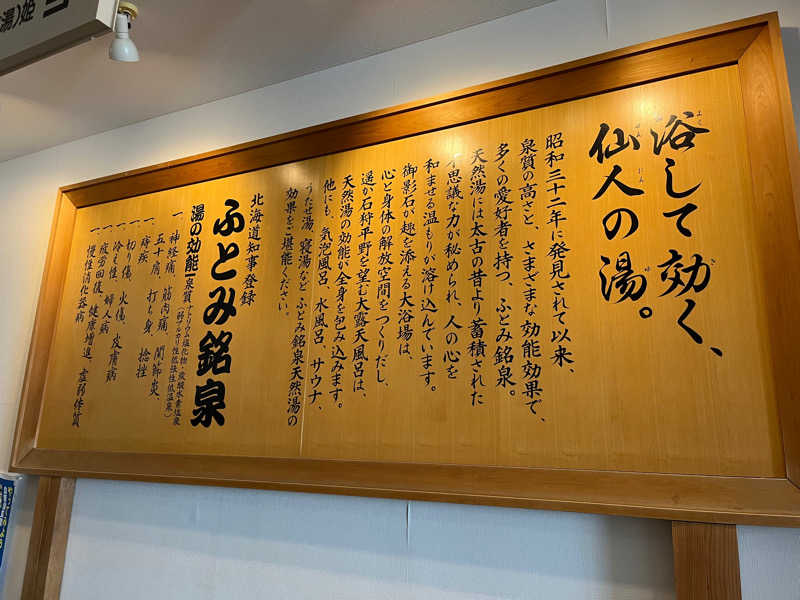 浴して効く、
仙人の湯。
昭和三十二年に発見されて以来、
泉質の高さと、さまざまな効能効果で、
多くの愛好者を持つ、ふとみ銘泉。
天然湯には太古の昔より蓄積された
不思議な力が秘められ、人の心を
和ませる温もりが溶け込んでいます。
御影石が趣を添える大浴場は、
心と身体の解放空間をつくりだし、
遥か石狩平野を望む大露天風呂は、
天然湯の効能が全身を包み込みます。
他にも、気泡風呂、水風呂、サウナ、
うたせ湯、寝湯など ふとみ銘泉天然湯の
効果をご堪能ください。
北海道知事登録
ふとみ銘泉
湯の効能
泉質 ナトリウム塩化物・炭酸水素塩泉
(弱アルカリ性低張性低温泉)
一、神経痛、筋肉痛、関節炎
五十肩、打ち身、捻挫
一、痔疾
一、切り傷、火傷、皮膚病
一、冷え性、婦人病
一、疲労回復、健康増進、虚弱体質
慢性消化器病
湯)姫